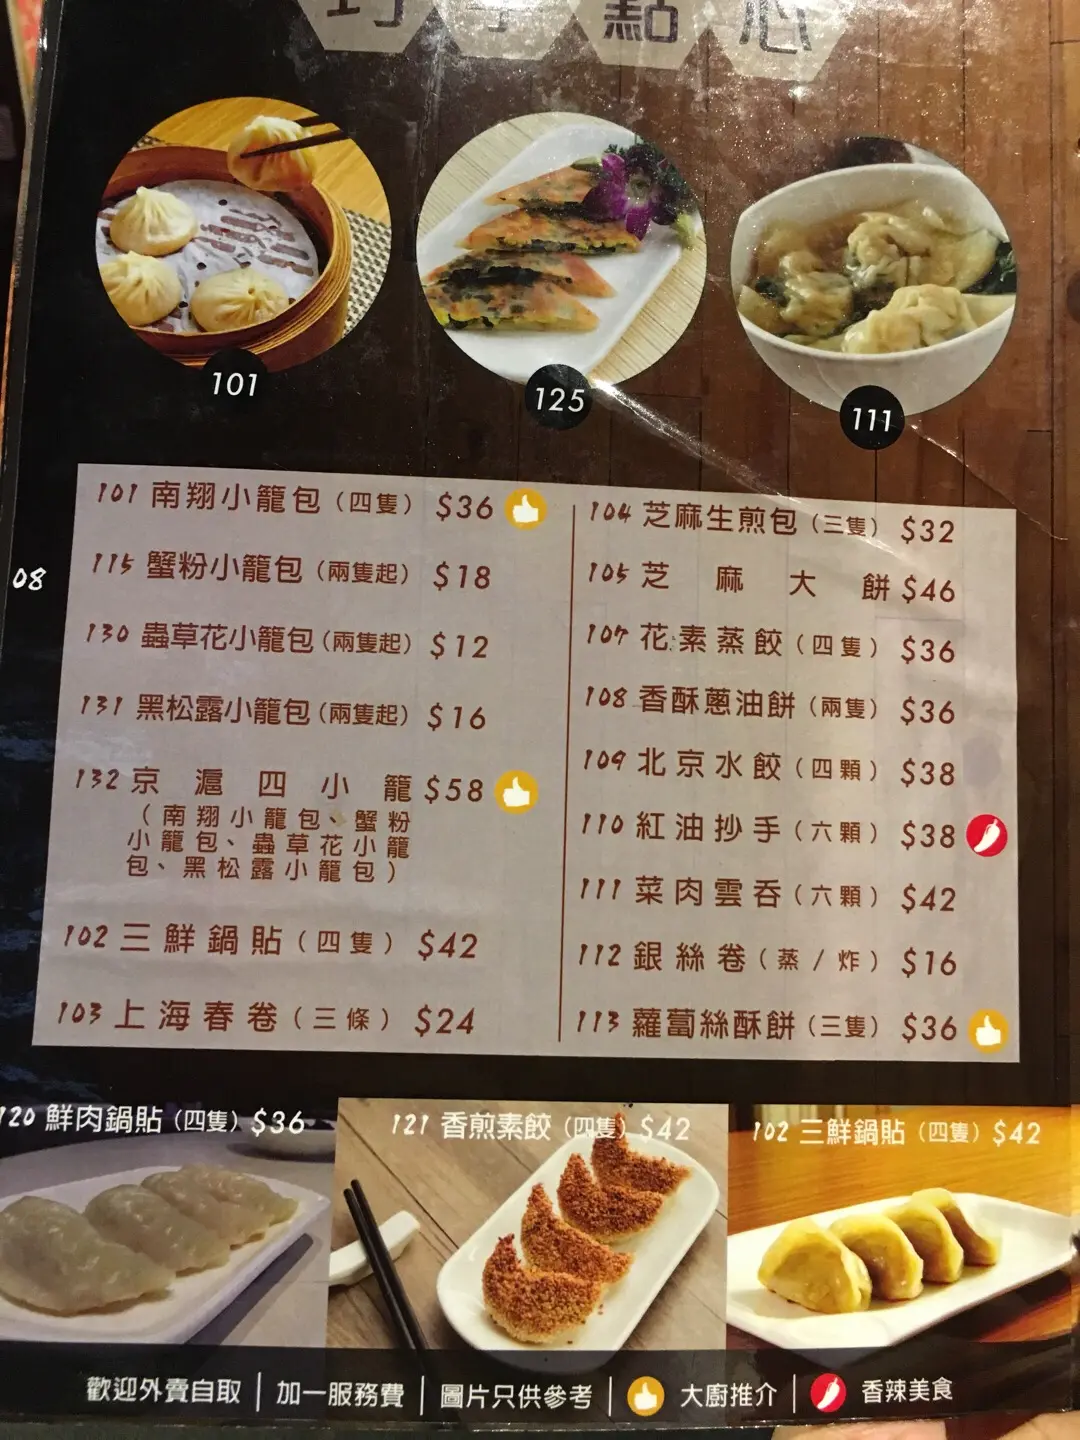 巧手點心
101
125
111
08
101 南翔小籠包（四隻） $36
115 蟹粉小籠包（兩隻起） $18
130 蟲草花小籠包（兩隻起） $12
131 黑松露小籠包（兩隻起） $16
132 京滬四小籠 $58
（南翔小籠包、蟹粉
小籠包、蟲草花小籠
包、黑松露小籠包）
102 三鮮鍋貼（四隻） $42
103 上海春卷（三條） $24
104 芝麻生煎包（三隻） $32
105 芝麻大餅 $46
107 花素蒸餃（四隻） $36
108 香酥蔥油餅（兩隻） $36
109 北京水餃（四顆） $38
110 紅油抄手（六顆） $38
111 菜肉雲吞（六顆） $42
112 銀絲卷（蒸/炸） $16
113 蘿蔔絲酥餅（三隻） $36
120 鮮肉鍋貼（四隻） $36
121 香煎素餃（四隻） $42
102 三鮮鍋貼（四隻） $42
歡迎外賣自取 | 加一服務費 | 圖片只供參考 | 大廚推介 | 香辣美食